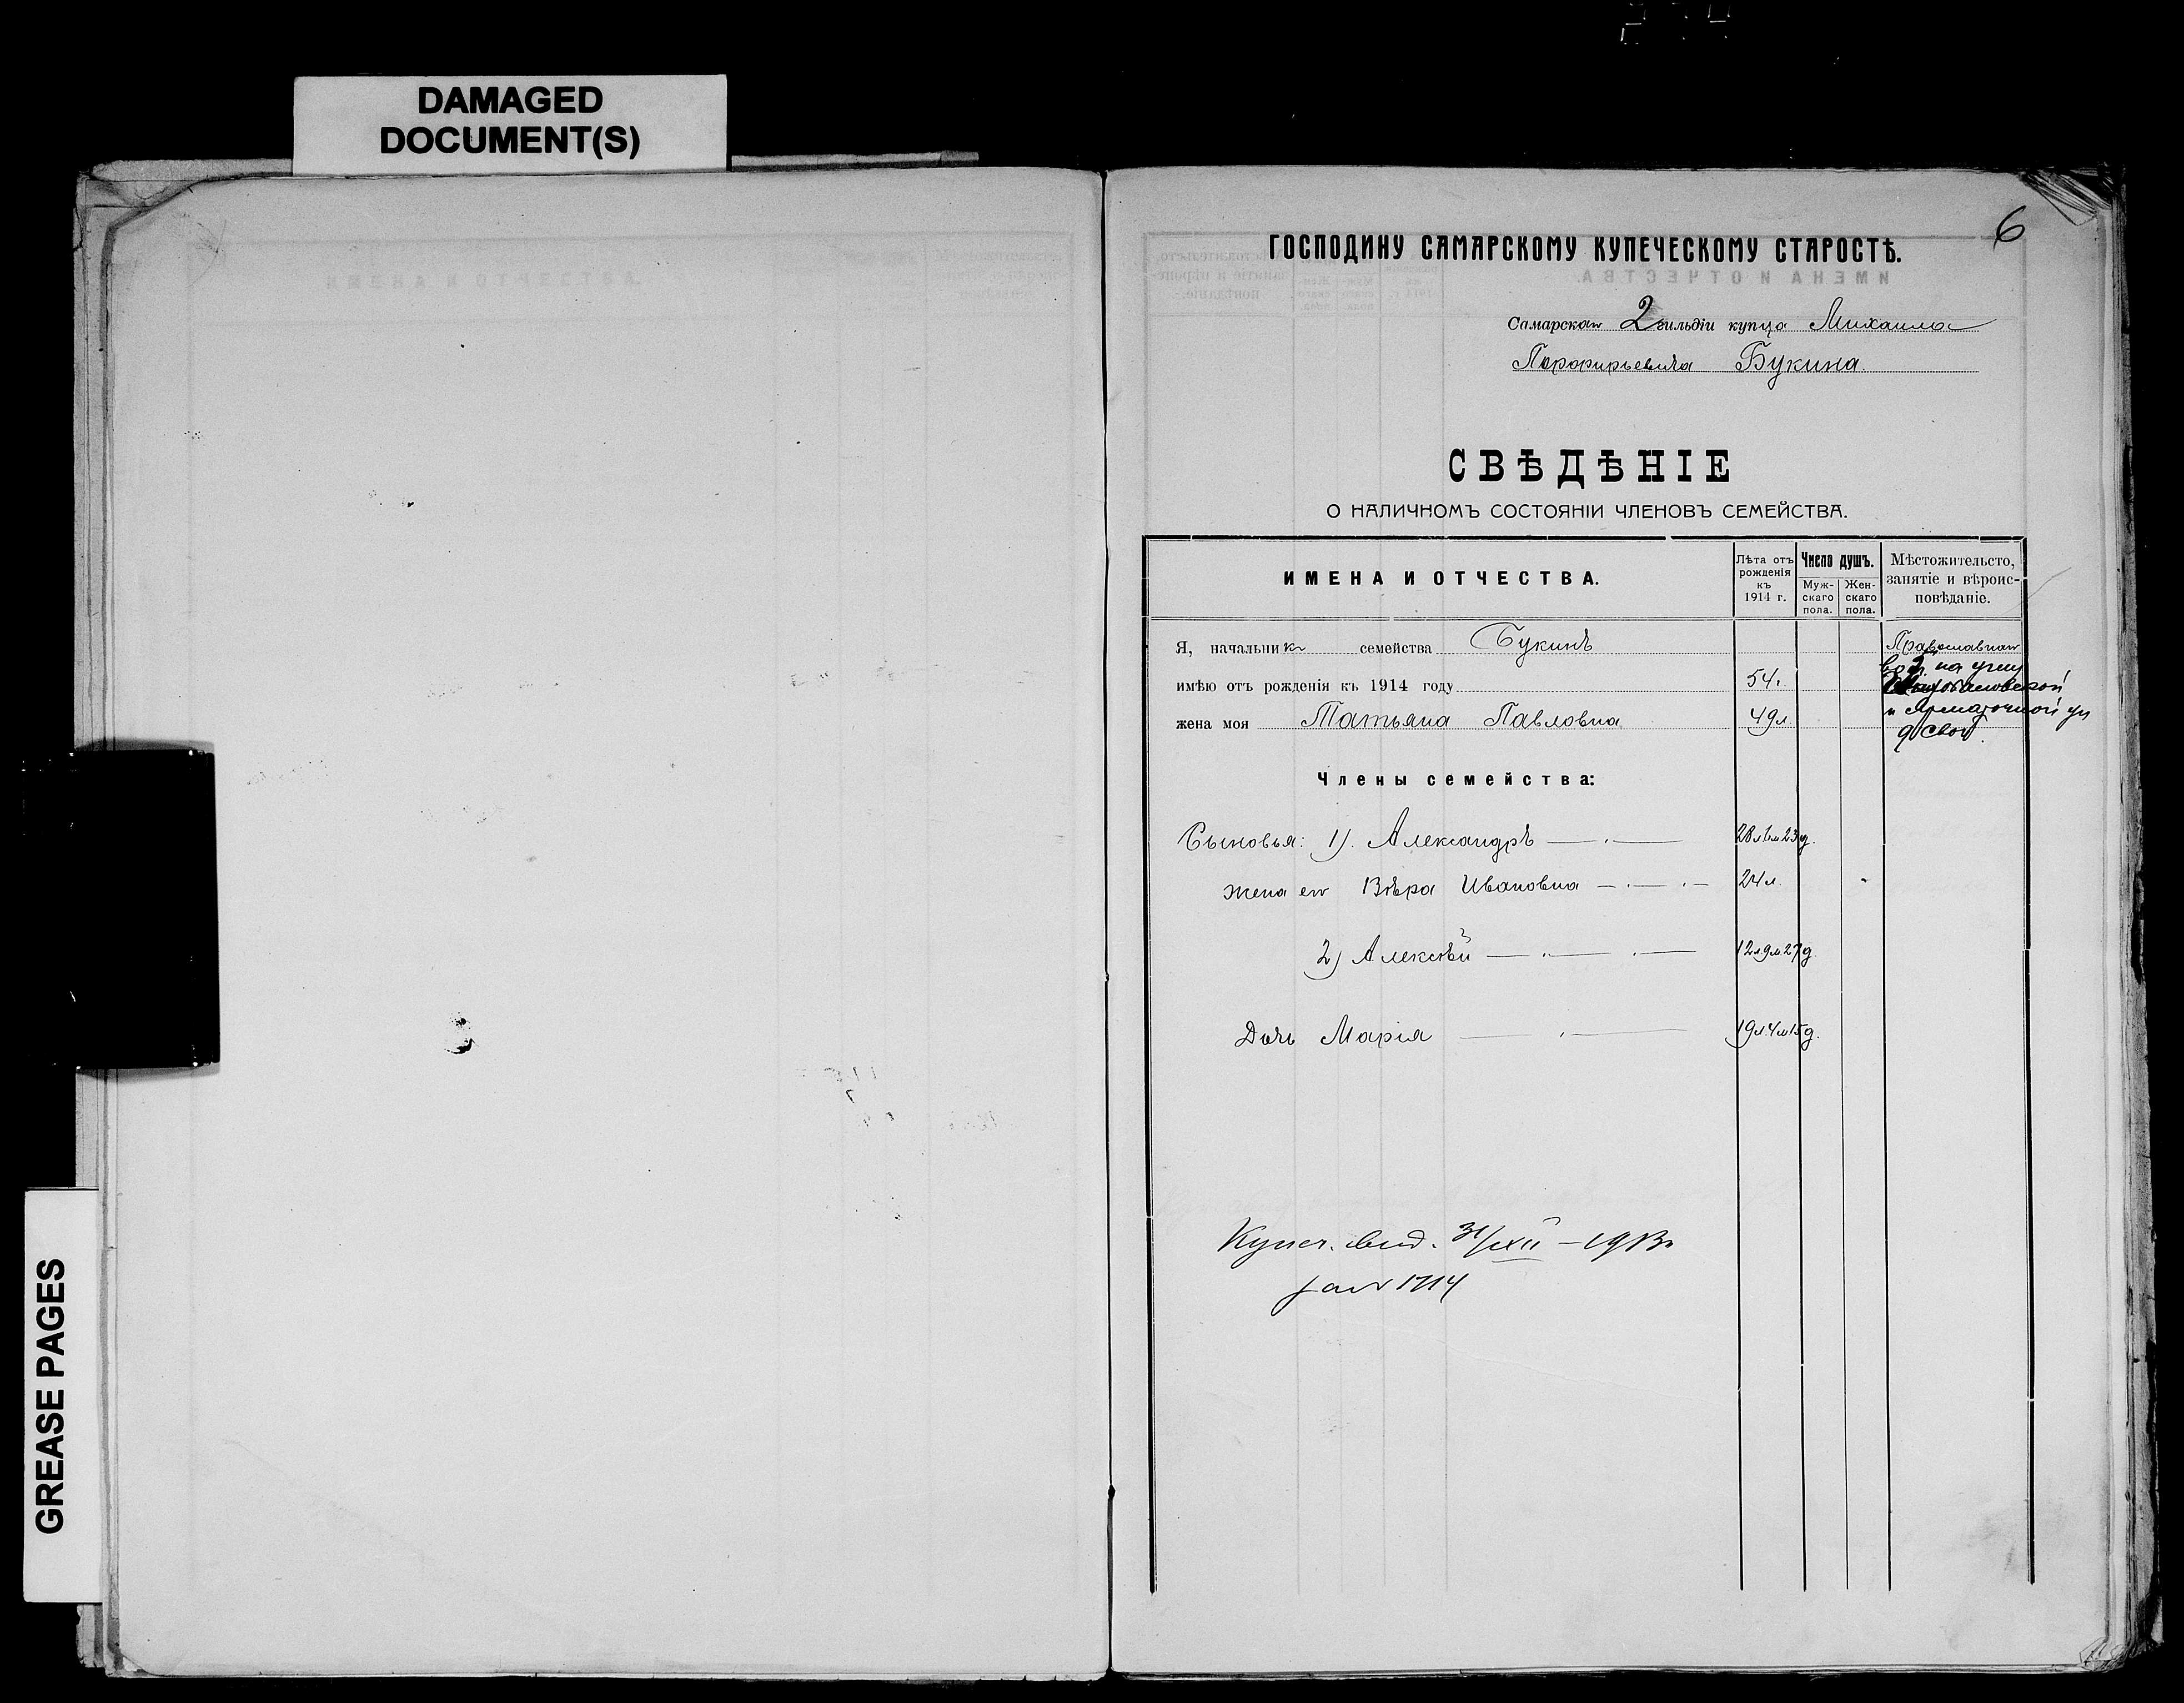 DAMAGED
DOCUMENT(S)
GREASE PAGES
6
ГОСПОДИНУ САМАРСКОМУ КУПЕЧЕСКОМУ СТАРОСТѢ.
Самарскаго 2 гильдіи купца Михаила
Порфирьевича Букина.
СВѢДѢНІЕ
О НАЛИЧНОМЪ СОСТОЯНІИ ЧЛЕНОВЪ СЕМЕЙСТВА.
ИМЕНА И ОТЧЕСТВА.
Лѣта отъ
рожденія
къ
1914 г.
Число душъ.
Муж-
скаго
пола.
Жен-
скаго
пола.
Мѣстожительсто,
занятіе и вѣроис-
повѣданіе.
Я, начальникъ семейства Букинъ
Православнаго
на углу
имѣю отъ рожденія къ 1914 году 54 г.
жена моя Татьяна Павловна 49 л.
и Ярмарочной ул
д свой.
Члены семейства:
Сыновья: 1). Александръ 28 л. 1 м 23 д.
жена его Вѣра Ивановна 24 л.
2) Алексѣй 12 л. 9 м. 27 д.
Дочь Марія 19 л. 4 м 15 д.
Купеч. 31/XII – 1913 г.
1914